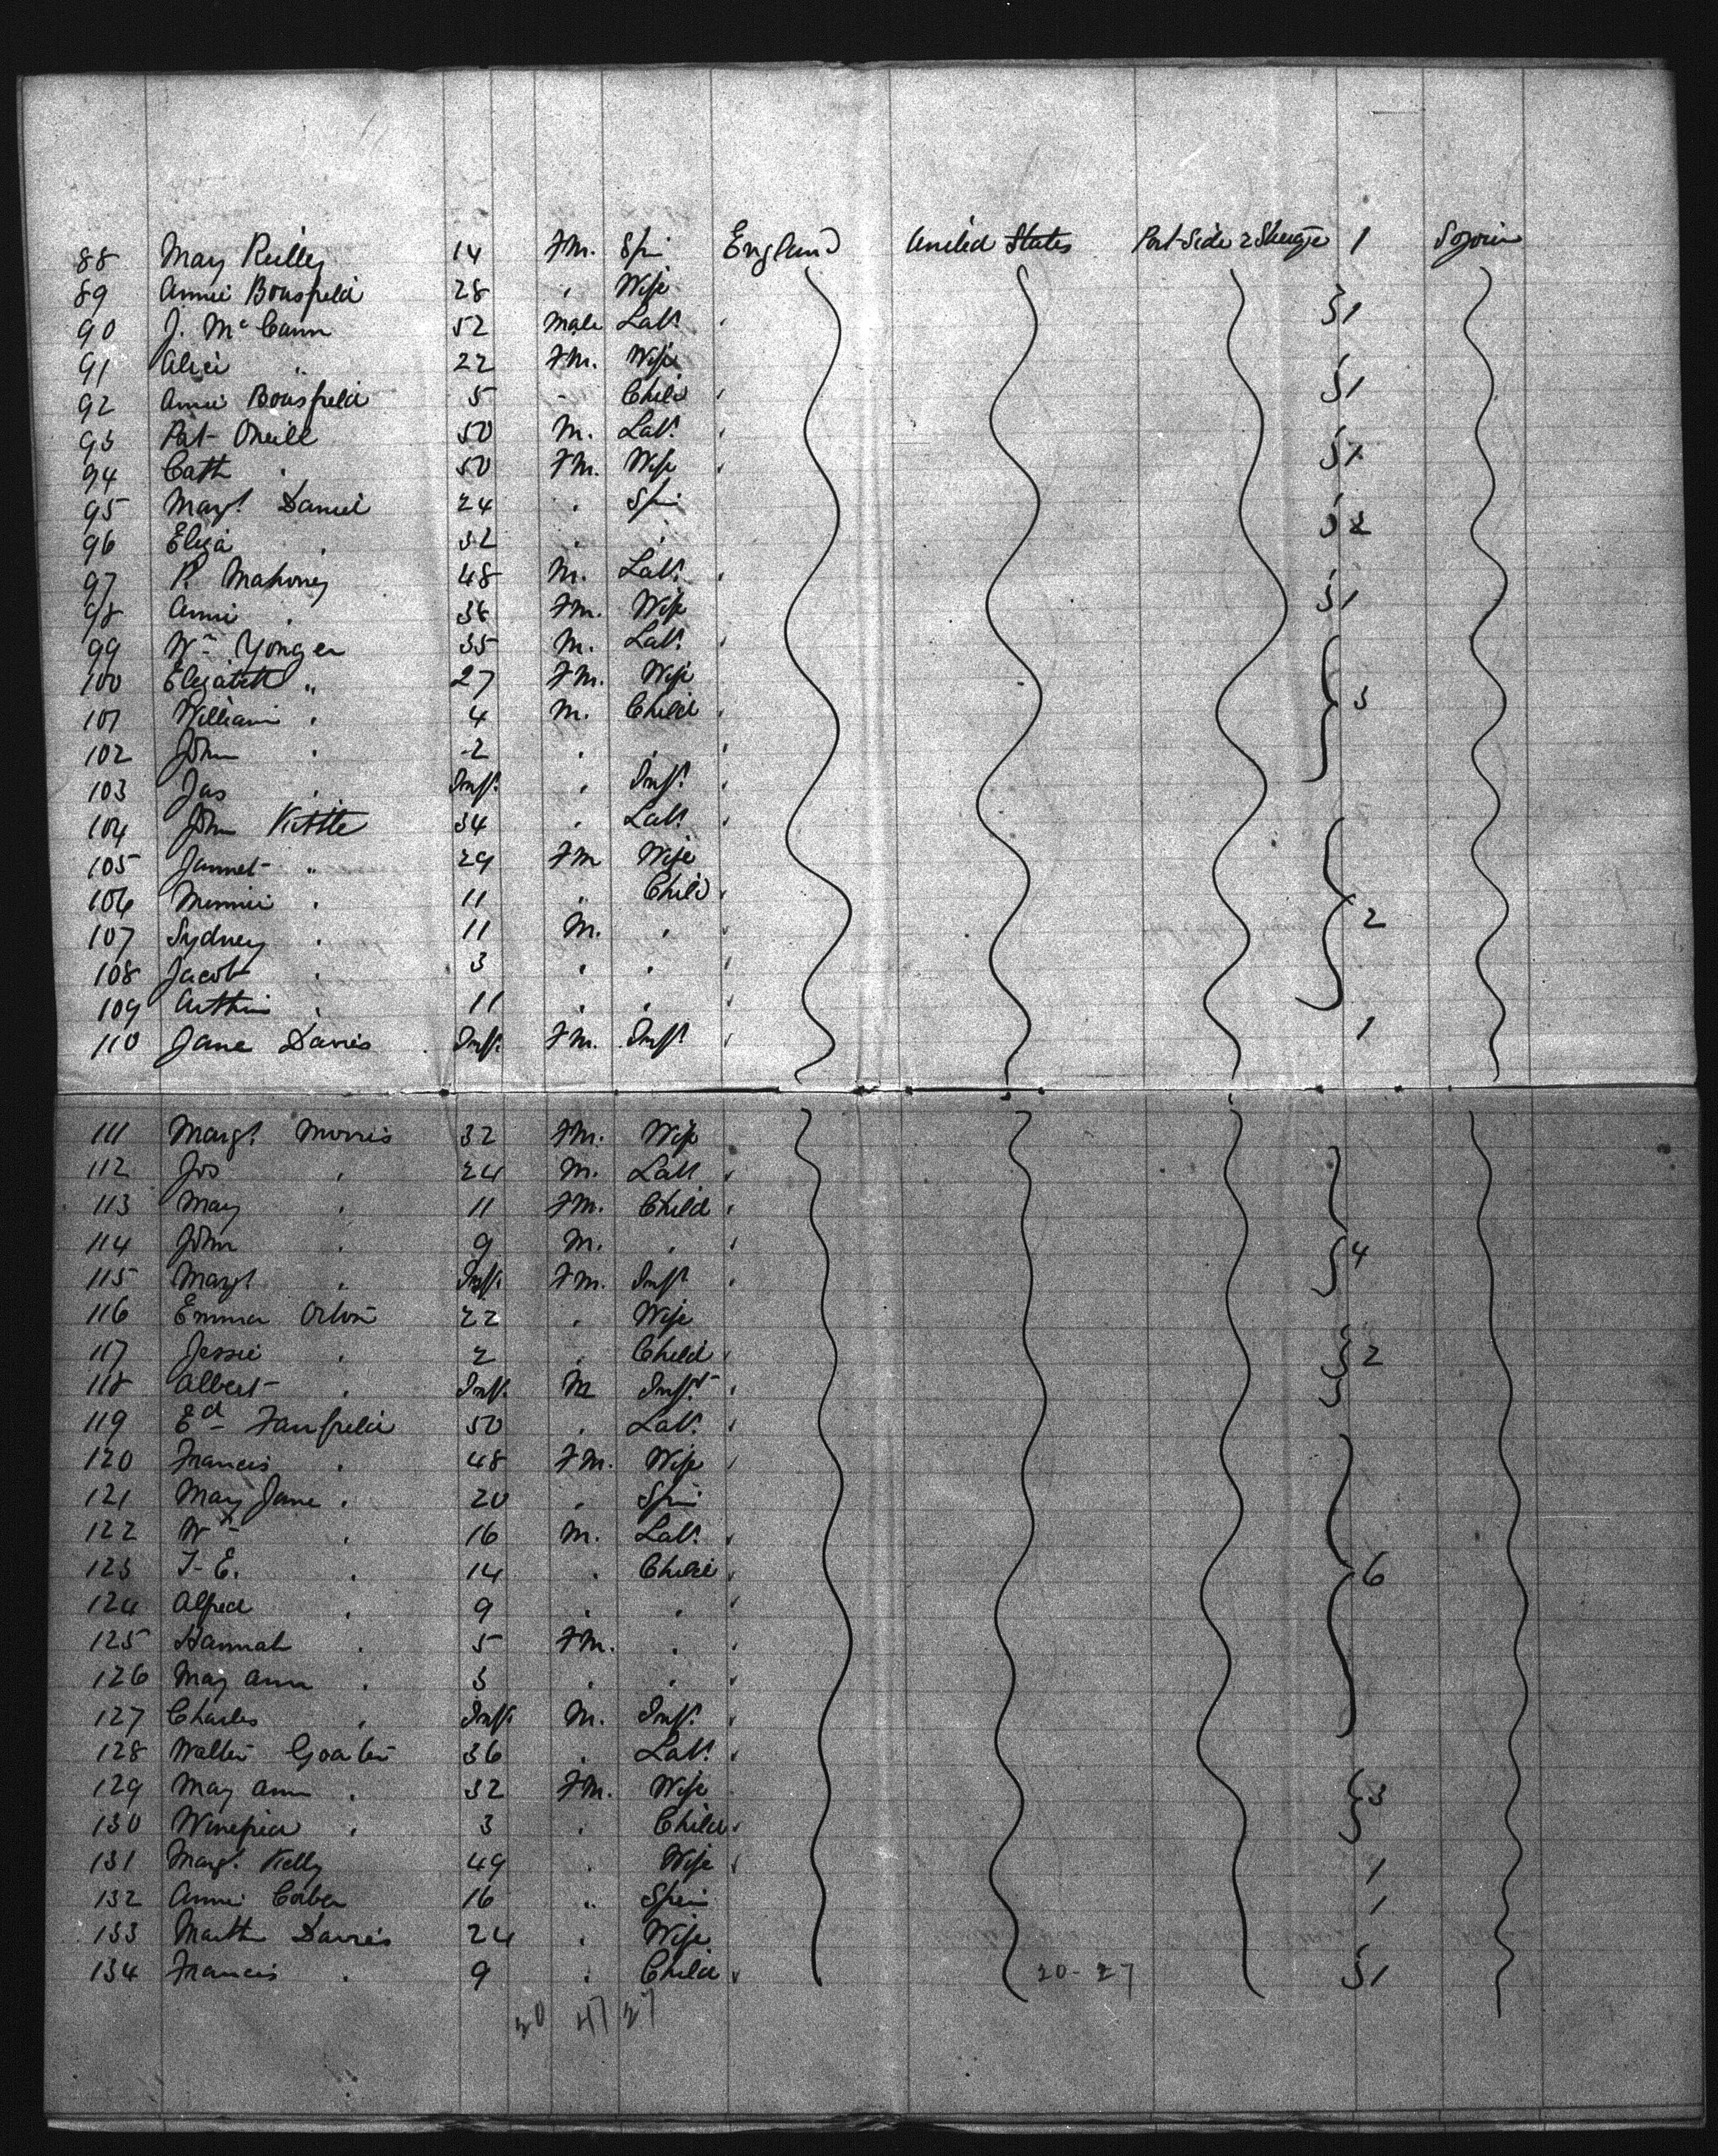 88 Mary Reilley 14 Fm. Spi England United States Port-Side 2 Steerage 1 Sojourn
89 Annie Bousfield 28 " Wife
90 J. McCann 52 Male Labr. } 1
91 Alice " 22 Fm. Wife
92 Annie Bousfield 5 - Child } 1
93 Pat Oneill 50 M. Labr.
94 Cath " 50 Fm. Wife } 1
95 Margt. Daniel 24 " Spi
96 Eliza " 32 " " } 2
97 P. Mahoney 48 M. Labr.
98 Annie " 38 Fm. Wife } 1
99 Wm Yonger 35 M. Labr.
100 Elizabeth " 27 Fm. Wife
101 William " 4 M. Child } 3
102 John " 2 " "
103 Jas " Inft. " Inft.
104 John Kittle 34 " Labr.
105 Jannet " 29 Fm Wife
106 Minnie " 11 " Child
107 Sydney " 11 M. " } 2
108 Jacob " 3 " "
109 Arthur " 11 " "
110 Jane Davies Inft. Fm. Inft. 1
111 Margt. Morris 32 Fm. Wife
112 Jos " 24 M. Labr
113 Mary " 11 Fm. Child
114 John " 9 M. " } 4
115 Margt " Inft. Fm. Inft
116 Emma Orton 22 " Wife
117 Jessie " 2 " Child } 2
118 Albert " Inft. M Inft.
119 Ed 50 " Labr.
120 Francis " 48 Fm. Wife
121 Mary Jane " 20 " Spi
122 Wm " 16 M. Labr.
123 T. E. " 14 " Child } 6
124 Alfred " 9 " "
125 Hannah " 5 Fm. "
126 Mary Ann " 3 " "
127 Charles " Inft. M. Inft.
128 Walter 36 " Labr.
129 Mary Ann " 32 Fm. Wife } 3
130 Winefred " 3 " Child
131 Margt. Kelly 49 " Wife 1
132 Annie 16 " Spin 1
133 Marth Davies 24 " Wife
134 Francis " 9 " Child 20-27 } 1
20 47 27